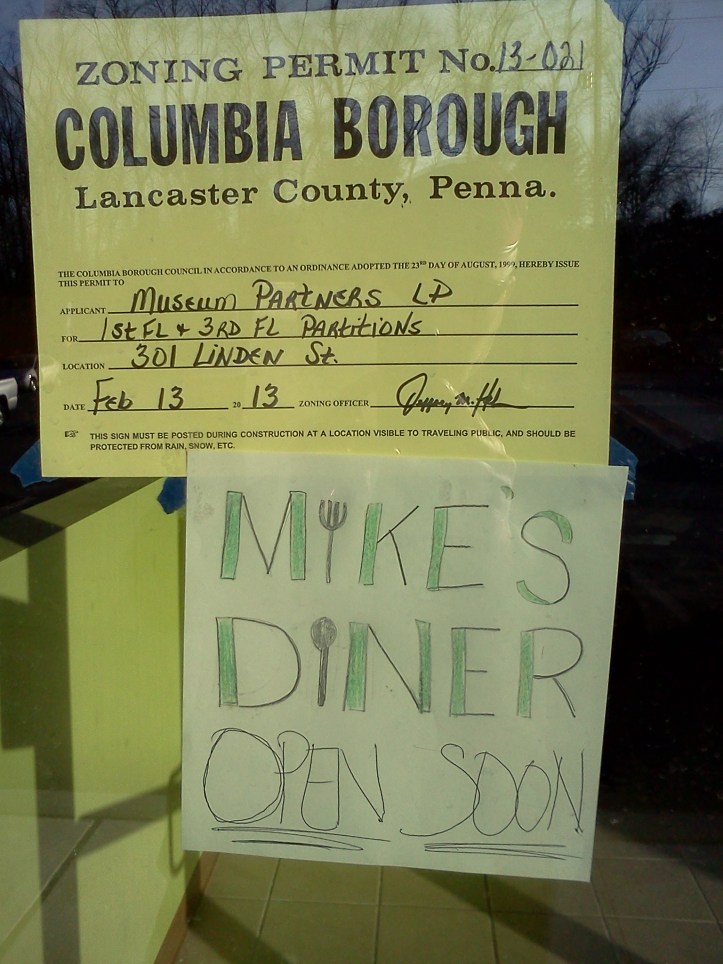 ZONING PERMIT No. 13-021
COLUMBIA BOROUGH
Lancaster County, Penna.
THE COLUMBIA BOROUGH COUNCIL IN ACCORDANCE TO AN ORDINANCE ADOPTED THE 23RD DAY OF AUGUST, 1999, HEREBY ISSUE
THIS PERMIT TO
APPLICANT Museum PARTNERS LP
FOR 1st FL + 3RD FL PARtitiONS
LOCATION 301 LiNDEN St.
DATE Feb 13 20 13 ZONING OFFICER
THIS SIGN MUST BE POSTED DURING CONSTRUCTION AT A LOCATION VISIBLE TO TRAVELING PUBLIC, AND SHOULD BE
PROTECTED FROM RAIN, SNOW, ETC.
MIKE'S
DINER
OPEN SOON